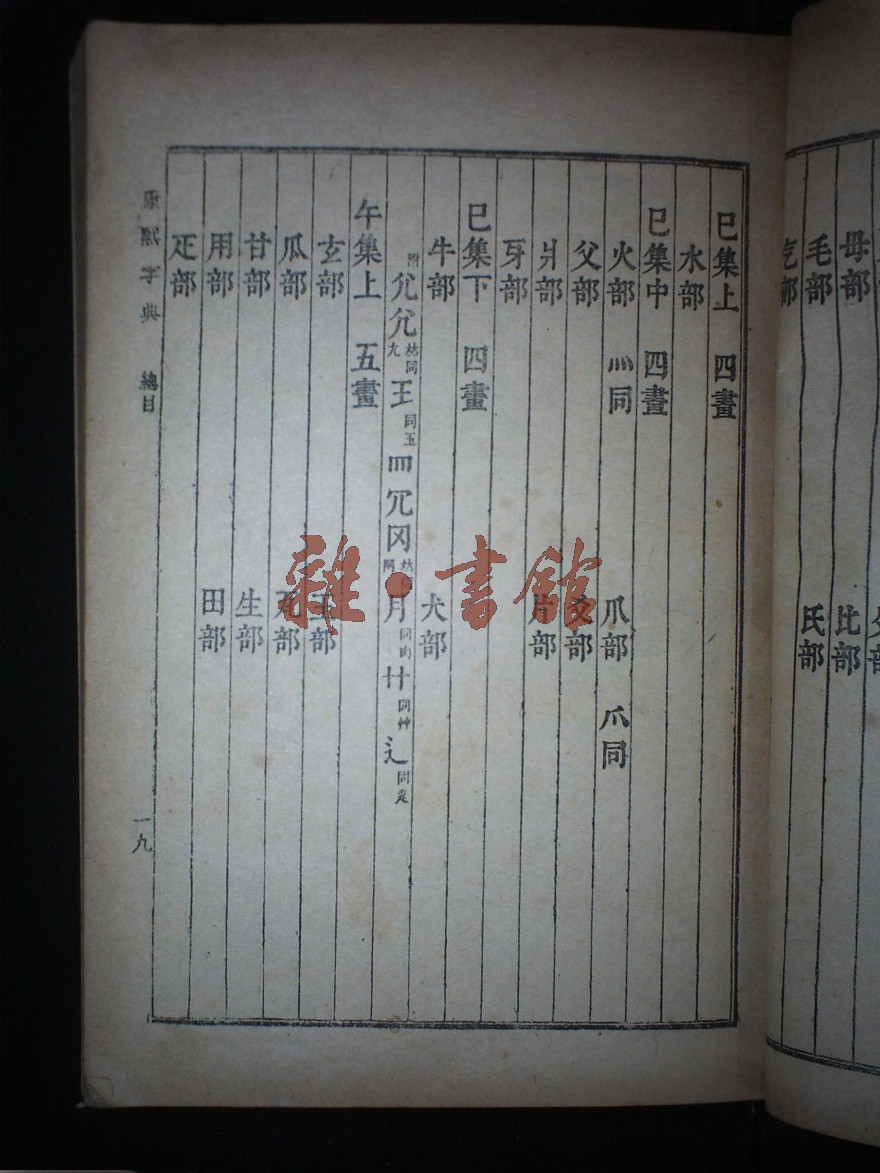 母部
毛部 氏部
比部
气部
巳集上 四畫
水部
巳集中 四畫
火部 灬同 爪部 爪同
父部 爻部
爿部 片部
牙部
巳集下 四畫
牛部 犬部
附 尣兊 並同尢 王 同玉 罒 冗 冈 月 同肉 艹 同艸 辶 同辵
午集上 五畫
玄部 玉部
瓜部 瓦部
甘部 生部
用部 田部
疋部
康熙字典 總目
一九
雜·書館